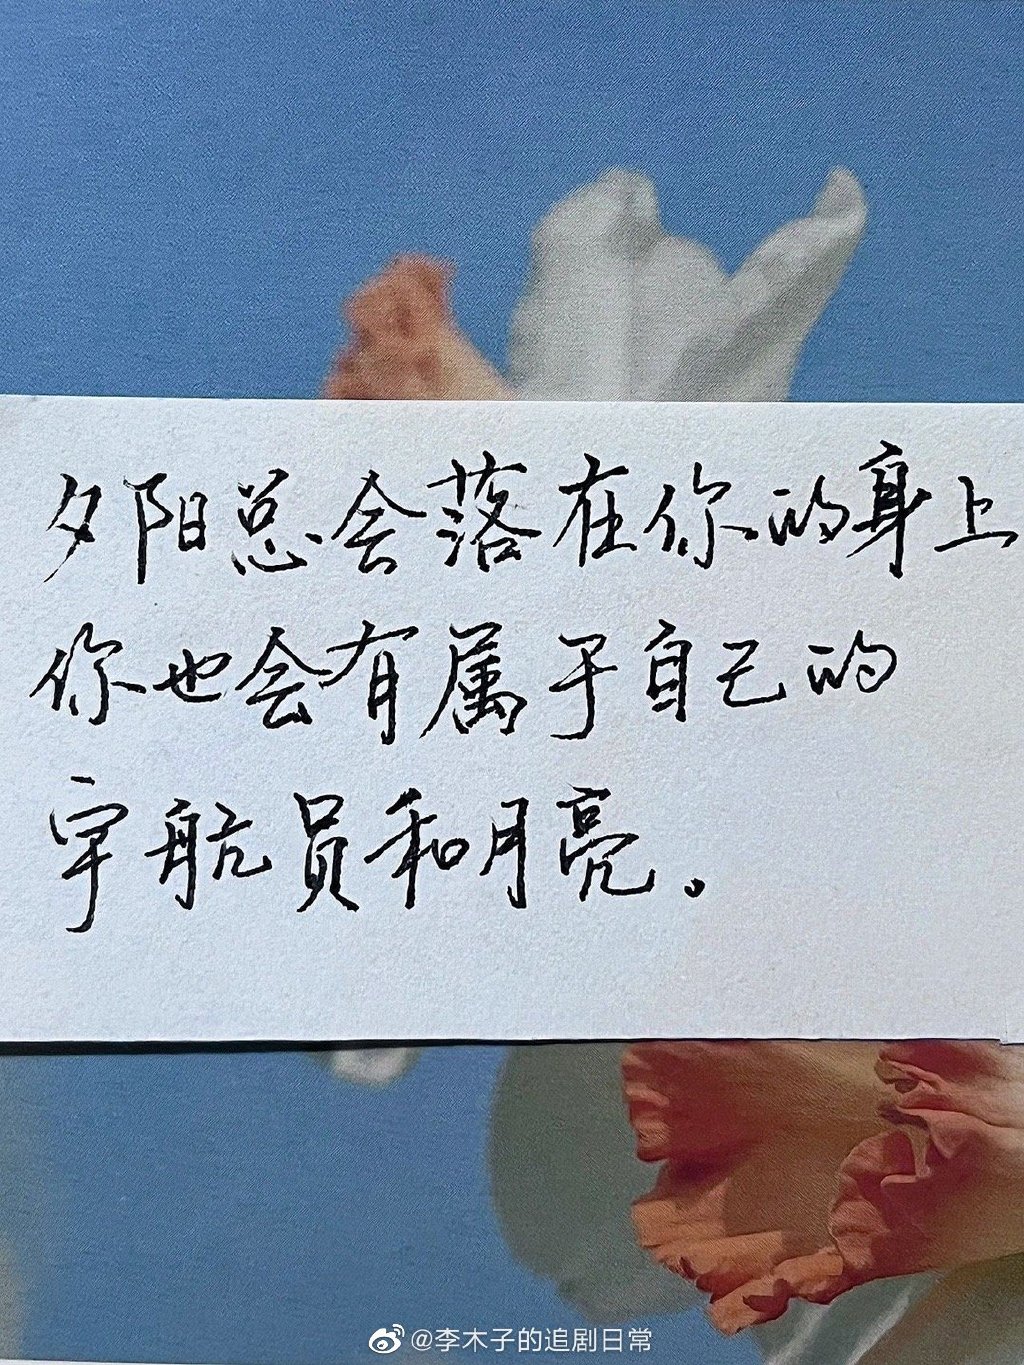 夕阳总会落在你的身上
你也会有属于自己的
宇航员和月亮。
@李木子的追剧日常